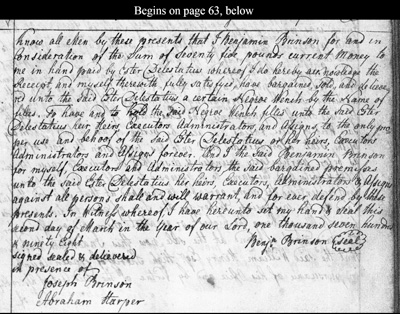 Begins on page 63, below
Know all Men by these presents that I Benjamin Brinson for and in
Consideration of the Sum of Seventy five pounds current Money to
me in hand paid by Ester Celestatius whereof I do hereby acknowledge the
Receipt and myself therewith fully satisfyed, have bargained Sold, and delivere
nd unto the Said Ester Celestatius a certain Negroe Wench by the Name of
fillis. To have and to hold the Said Negroe Wench fillis unto the Said Ester
Celestatius her Heirs Executors Administrators and Assigns, to the only pro
per use and behoof of the Said Ester Celestatius or her heirs, Executors
Administrators and Assigns forever. And I the Said Benjamin Brinson
for myself, Executors and Administrators the Said bargained premises
unto the Said Ester Celestatius her heirs, Executors, Administrators & Assigns
against all persons shall and will warrant, and for ever defend by these
presents. In Witness whereof I have hereunto set my hand & seal this
second day of March in the Year of our Lord, one thousand seven hundred
& ninety Eight
Benjn. Brinson seal
signed sealed & delivered
in presence of
Joseph Brinson
Abraham Harper